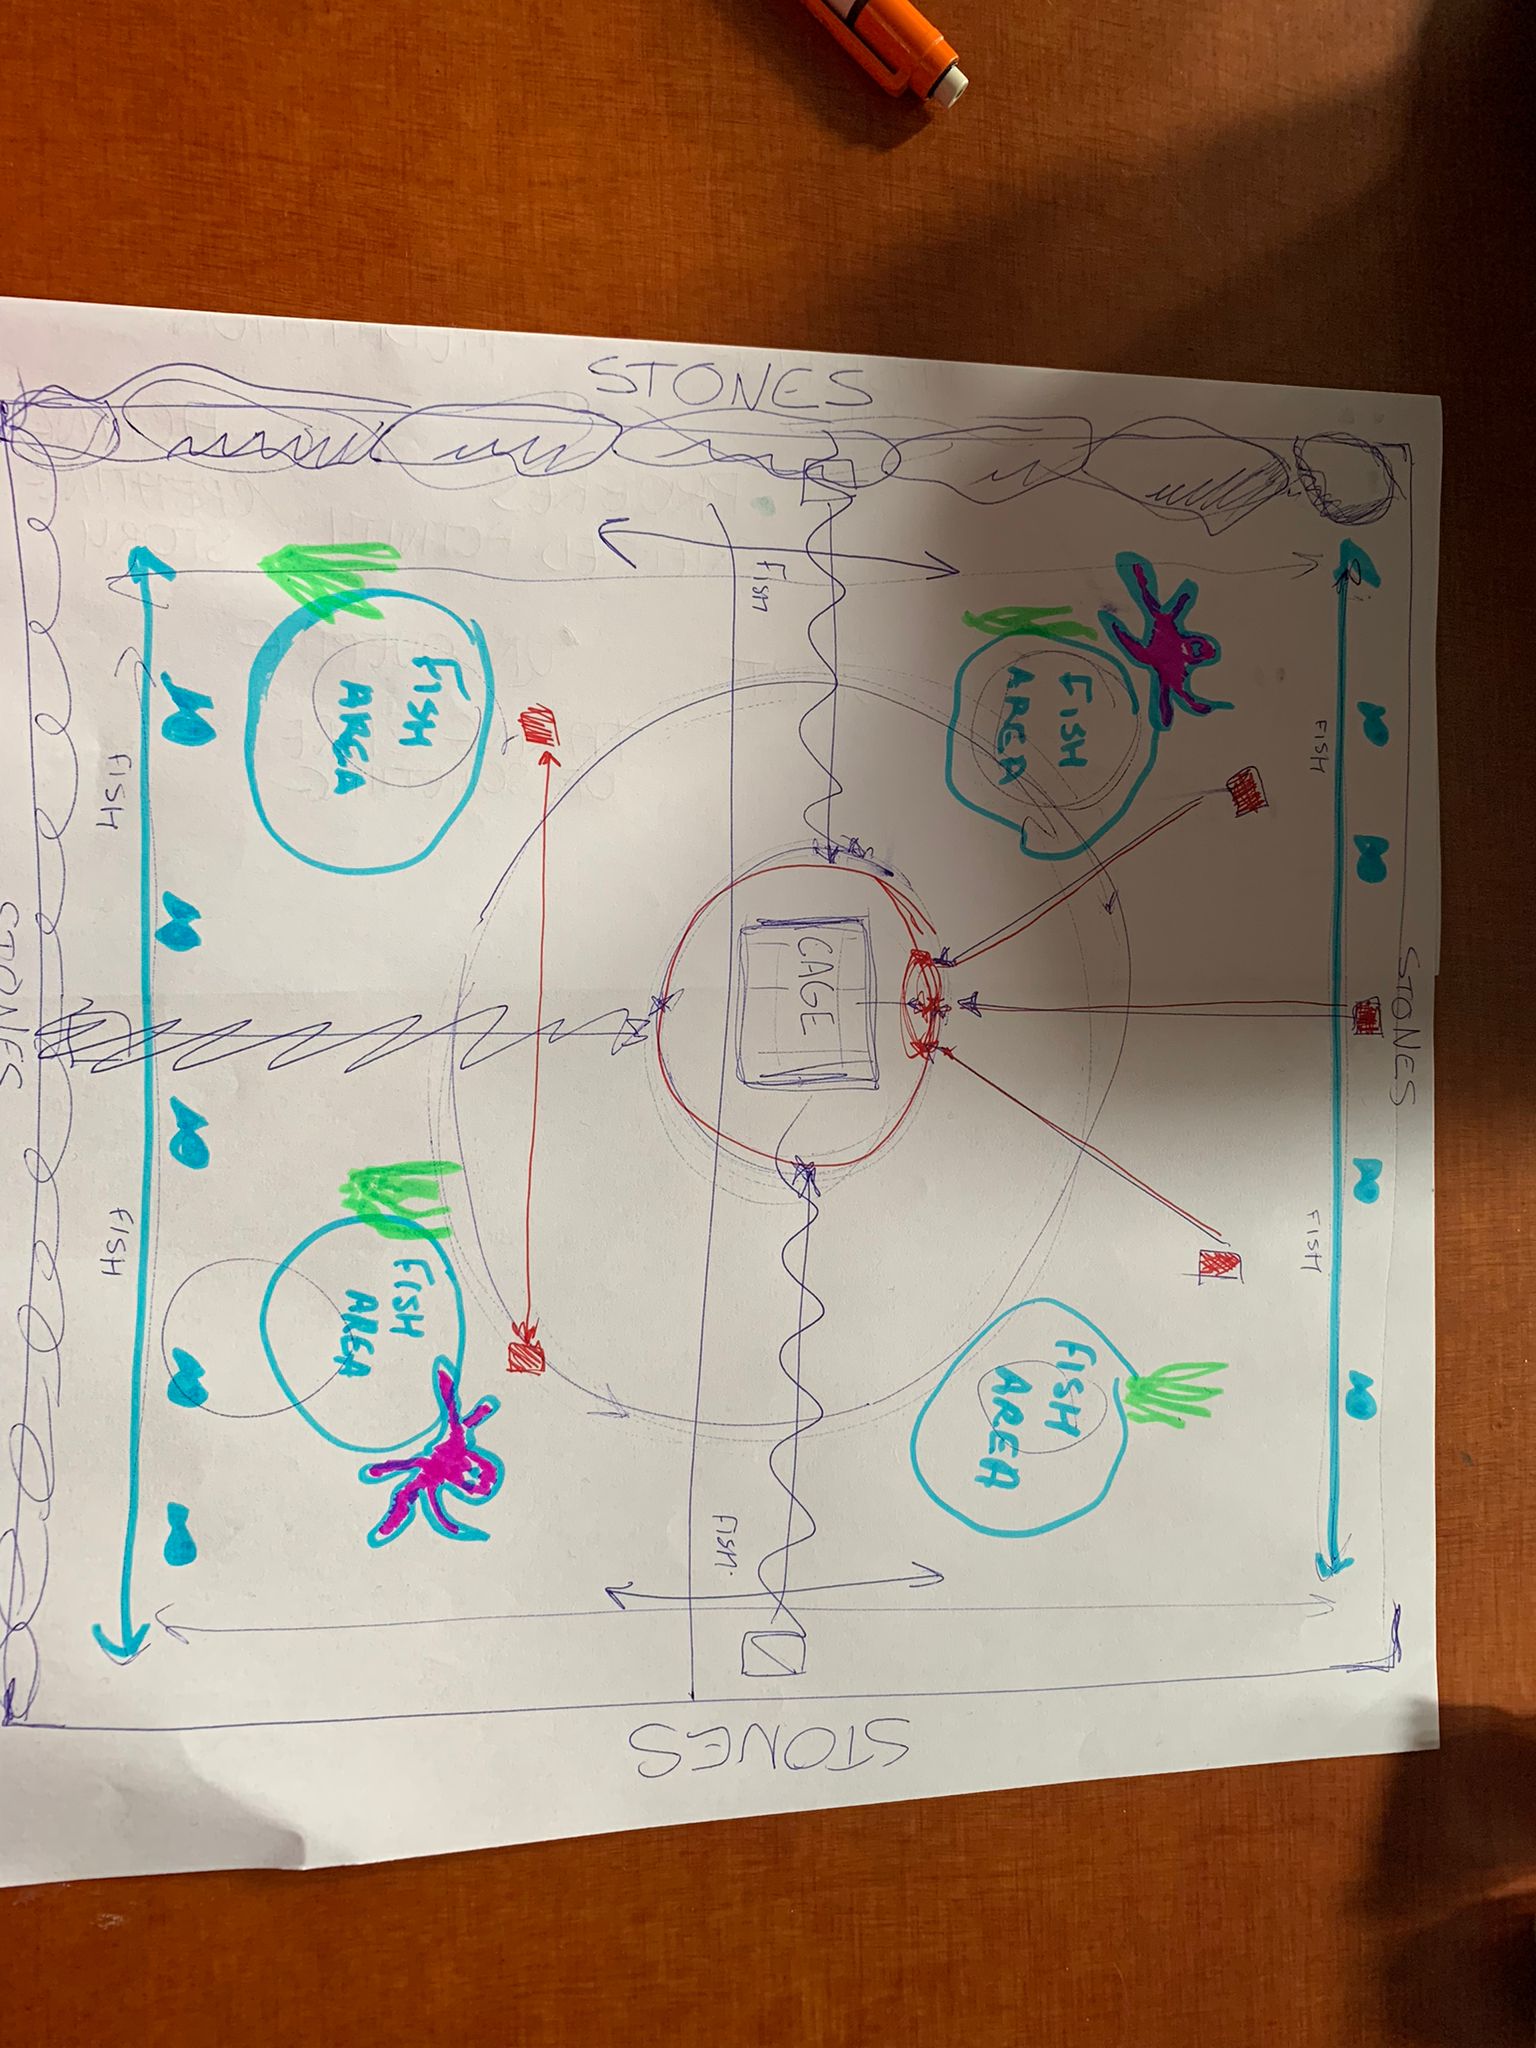 STONES
FISH
FISH
FISH
AREA
FISH
AREA
STONES
STONES
CAGE
FISH
FISH
FISH
AREA
FISH
AREA
FISH
FISH
STONES